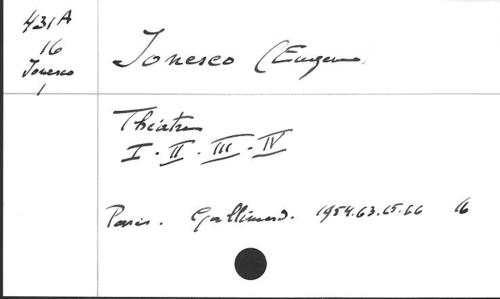 431A
16
Ionesco
1
Ionesco (Eugene)
Théatre
I. II. III. IV
Paris. Gallimard. 1954.63.65.66 16